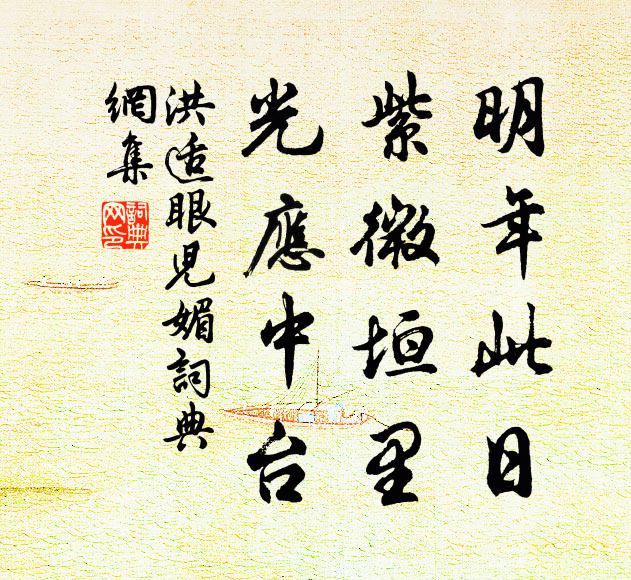 明年此日
紫微垣里
光應中台
洪适眼兒媚詞典
網集
詞典
网印